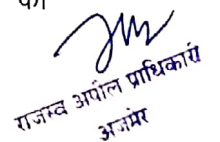 का
राजस्व अपील प्राधिकारी
अजमेर